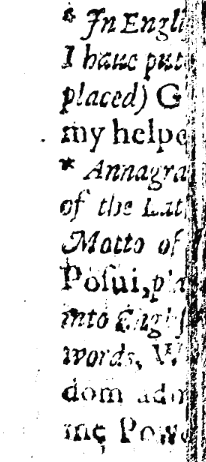 * In Engli
I haue put
placed) G
my helpe
* Annagra
of the Lat
Motto of
Poſui, pla
into Engliſ
words, W
dom adm
me Powe